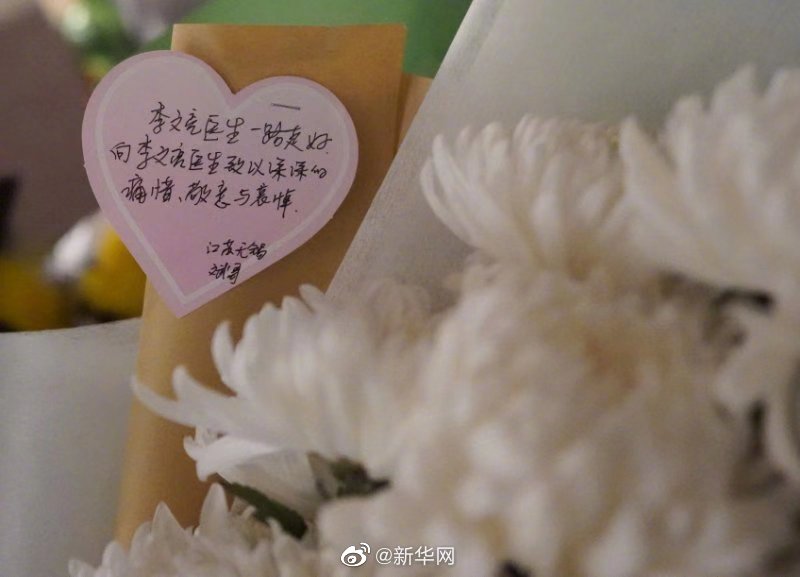 李文亮医生一路走好.
向李文亮医生致以深深的
痛惜、敬意与哀悼.
江苏无锡
@新华网